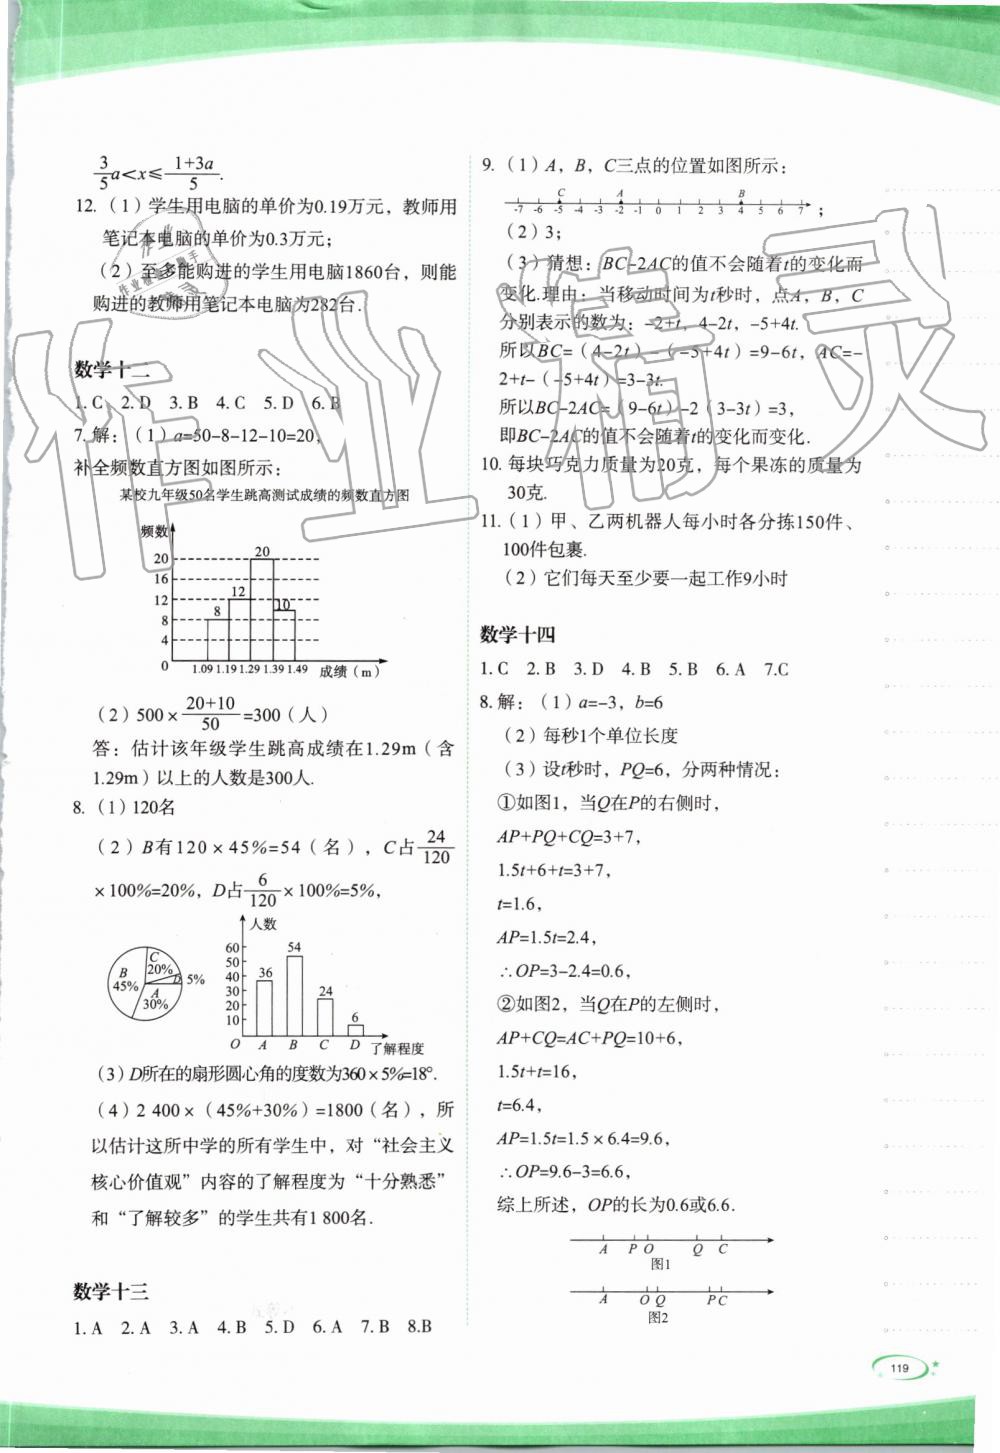 3/5 a<x≤(1+3a)/5.
12.（1）学生用电脑的单价为0.19万元，教师用
笔记本电脑的单价为0.3万元；
（2）至多能购进的学生用电脑1860台，则能
购进的教师用笔记本电脑为282台.
数学十二
1. C 2. D 3. B 4. C 5. D 6. B
7. 解：（1）a=50-8-12-10=20，
补全频数直方图如图所示：
某校九年级50名学生跳高测试成绩的频数直方图
频数
20
16
12
8
4
0
8
12
20
10
1.09 1.19 1.29 1.39 1.49 成绩（m）
（2）500×(20+10)/50=300（人）
答：估计该年级学生跳高成绩在1.29m（含
1.29m）以上的人数是300人.
8.（1）120名
（2）B有120×45%=54（名），C占24/120
×100%=20%，D占6/120×100%=5%，
B
45%
C
20%
D 5%
A
30%
人数
60
50
40
30
20
10
36
54
24
6
O A B C D 了解程度
（3）D所在的扇形圆心角的度数为360×5%=18°.
（4）2 400×（45%+30%）=1800（名），所
以估计这所中学的所有学生中，对“社会主义
核心价值观”内容的了解程度为“十分熟悉”
和“了解较多”的学生共有1 800名.
数学十三
1. A 2. A 3. A 4. B 5. D 6. A 7. B 8.B
9.（1）A，B，C三点的位置如图所示：
C A B
-7 -6 -5 -4 -3 -2 -1 0 1 2 3 4 5 6 7 ；
（2）3；
（3）猜想：BC-2AC的值不会随着t的变化而
变化.理由：当移动时间为t秒时，点A，B，C
分别表示的数为：-2+t，4-2t，-5+4t.
所以BC=（4-2t）-（-5+4t）=9-6t，AC=-
2+t-（-5+4t）=3-3t.
所以BC-2AC=（9-6t）-2（3-3t）=3，
即BC-2AC的值不会随着t的变化而变化.
10. 每块巧克力质量为20克，每个果冻的质量为
30克.
11.（1）甲、乙两机器人每小时各分拣150件、
100件包裹.
（2）它们每天至少要一起工作9小时
数学十四
1. C 2. B 3. D 4. B 5. B 6. A 7.C
8. 解：（1）a=-3，b=6
（2）每秒1个单位长度
（3）设t秒时，PQ=6，分两种情况：
①如图1，当Q在P的右侧时，
AP+PQ+CQ=3+7，
1.5t+6+t=3+7，
t=1.6，
AP=1.5t=2.4，
∴OP=3-2.4=0.6，
②如图2，当Q在P的左侧时，
AP+CQ=AC+PQ=10+6，
1.5t+t=16，
t=6.4，
AP=1.5t=1.5×6.4=9.6，
∴OP=9.6-3=6.6，
综上所述，OP的长为0.6或6.6.
A P O Q C
图1
A O Q P C
图2
119
作业精灵